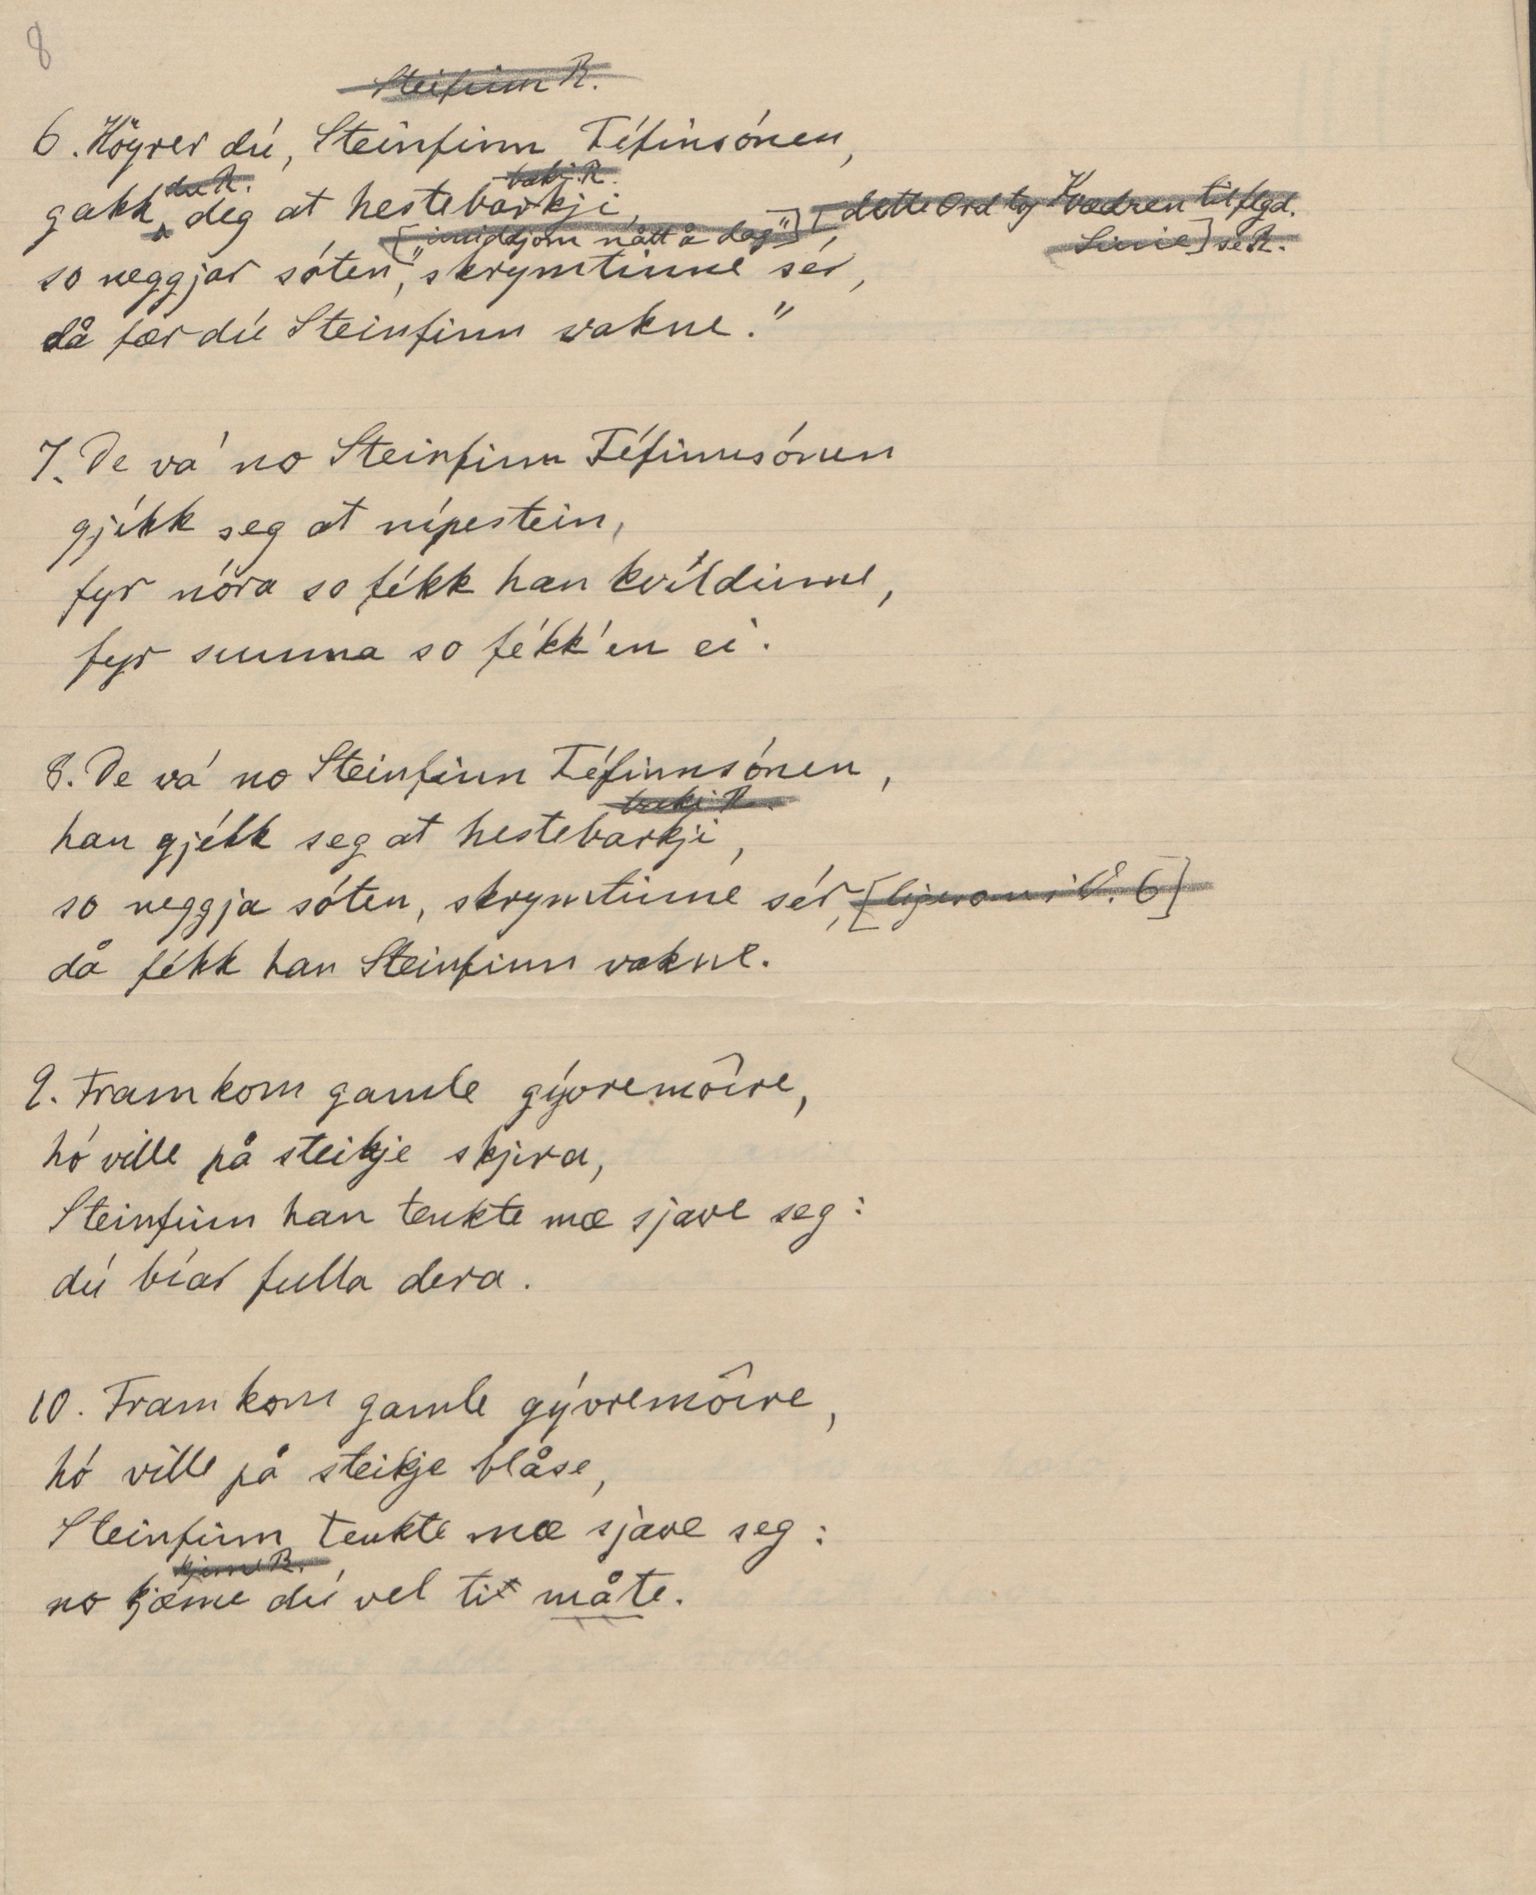 8
Steifinn R.
6. Höyrer dú, Steinfinn Féfinsónen,
du R. bakj. R.
gakk deg at hestebarkji,
["imiddjom nått å dag"] [dette Ord tog Kvædren til flgd.
Linie] se R.
so neggjar sóten, skrymtinne sér,
då fær dú Steinfinn vakne."
7. De va' no Steinfinn Féfinnsónen
gjékk seg at nípestein,
fyr nóra so fékk han kvíldinne,
fyr sunna so fékk'en ei.
8. De va' no Steinfinn Féfinnsónen,
bakj R.
han gjékk seg at hestebarkji,
so neggja sóten, skrymtinne sér, [ligesom i V. 6]
då fékk han Steinfinn vakne.
9. Fram kom gamle gývremôire,
hó ville på steikje skjera,
Steinfinn han tenkte mæ sjave seg:
dú bíar fulla dera.
10. Fram kom gamle gývremôire,
hó ville på steikje blåse,
Steinfinn tenkte mæ sjave seg:
kjem R.
no kjæme dú vel tit måte.